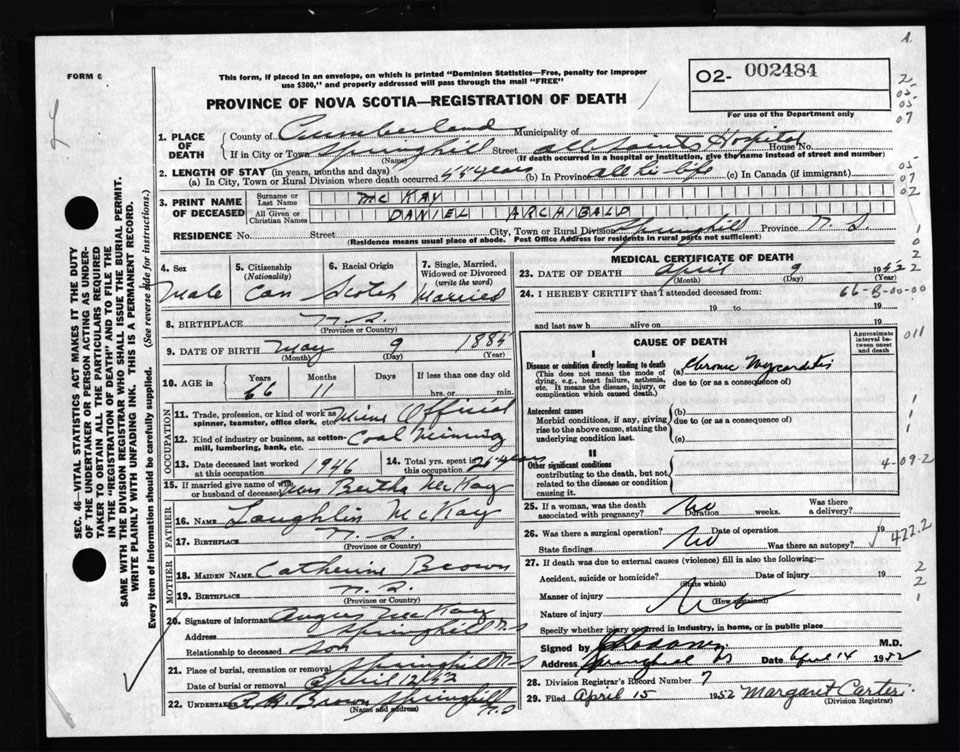 FORM 6
This form, if placed in an envelope, on which is printed "Dominion Statistics—Free, penalty for improper
use $300," and properly addressed will pass through the mail "FREE"
02- 002484
For use of the Department only
PROVINCE OF NOVA SCOTIA—REGISTRATION OF DEATH
1. PLACE OF DEATH
County of Cumberland Municipality of
If in City or Town Springhill Street All Saints Hospital House No.
(Name) (If death occurred in a hospital or institution, give the name instead of street and number)
2. LENGTH OF STAY (in years, months and days)
(a) In City, Town or Rural Division where death occurred 54 years (b) In Province all his life (c) In Canada (if immigrant)
3. PRINT NAME OF DECEASED
Surname or Last Name McKAY
All Given or Christian Names DANIEL ARCHIBALD
RESIDENCE No. Street City, Town or Rural Division Springhill Province N.S.
(Residence means usual place of abode. Post Office Address for residents in rural parts not sufficient)
4. Sex Male
5. Citizenship (Nationality) Can
6. Racial Origin Scotch
7. Single, Married, Widowed or Divorced (write the word) Married
8. BIRTHPLACE N.S.
(Province or Country)
9. DATE OF BIRTH May 9 1885
(Month) (Day) (Year)
10. AGE in Years Months Days If less than one day
66 11 hrs. or min.
OCCUPATION
11. Trade, profession, or kind of work as spinner, teamster, office clerk, etc. Mine Official
12. Kind of industry or business, as cotton-mill, lumbering, bank, etc. Coal Mining
13. Date deceased last worked at this occupation 1946
14. Total yrs. spent in this occupation 26 years
15. If married give name of wife or husband of deceased Mrs Bertha McKay
FATHER
16. NAME Laughlin McKay
17. BIRTHPLACE N.S.
MOTHER
18. MAIDEN NAME Catherine Brown
19. BIRTHPLACE N.S.
(Province or Country)
20. Signature of informant Angus McKay
Address Springhill N S
Relationship to deceased son
21. Place of burial, cremation or removal Springhill N S
Date of burial or removal April 12/52
22. UNDERTAKER R. M. Brown Springhill N.S
(Name and address)
MEDICAL CERTIFICATE OF DEATH
23. DATE OF DEATH April 9 1952
(Month) (Day) (Year)
24. I HEREBY CERTIFY that I attended deceased from:
66-B-00-00
19 to 19
and last saw h alive on 19
CAUSE OF DEATH
Approximate interval between onset and death
I
Disease or condition directly leading to death
(This does not mean the mode of dying, e.g., heart failure, asthenia, etc. It means the disease, injury, or complication which caused death.)
(a) Chronic Myocarditis
due to (or as a consequence of)
Antecedent causes
Morbid conditions, if any, giving rise to the above cause, stating the underlying condition last.
(b)
due to (or as a consequence of)
(c)
II
Other significant conditions
contributing to the death, but not related to the disease or condition causing it.
4-09-2
25. If a woman, was the death associated with pregnancy? No Duration weeks. Was there a delivery?
26. Was there a surgical operation? No Date of operation 19
State findings Was there an autopsy?
422.2
27. If death was due to external causes (violence) fill in also the following:
Accident, suicide or homicide? Date of injury 19
(State which)
Manner of injury
(How sustained)
Nature of injury
Specify whether injury occurred in industry, in home, or in public place
Signed by M.D.
Address Springhill NS Date April 14 1952
28. Division Registrar's Record Number 7
29. Filed April 15 1952 Margaret Carter
(Division Registrar)
SEC. 46—VITAL STATISTICS ACT MAKES IT THE DUTY
OF THE UNDERTAKER OR PERSON ACTING AS UNDER-
TAKER TO OBTAIN ALL THE PARTICULARS REQUIRED
IN THE "REGISTRATION OF DEATH" AND TO FILE THE
SAME WITH THE DIVISION REGISTRAR WHO SHALL ISSUE THE BURIAL PERMIT.
WRITE PLAINLY WITH UNFADING INK. THIS IS A PERMANENT RECORD.
Every item of information should be carefully supplied. (See reverse side for instructions.)